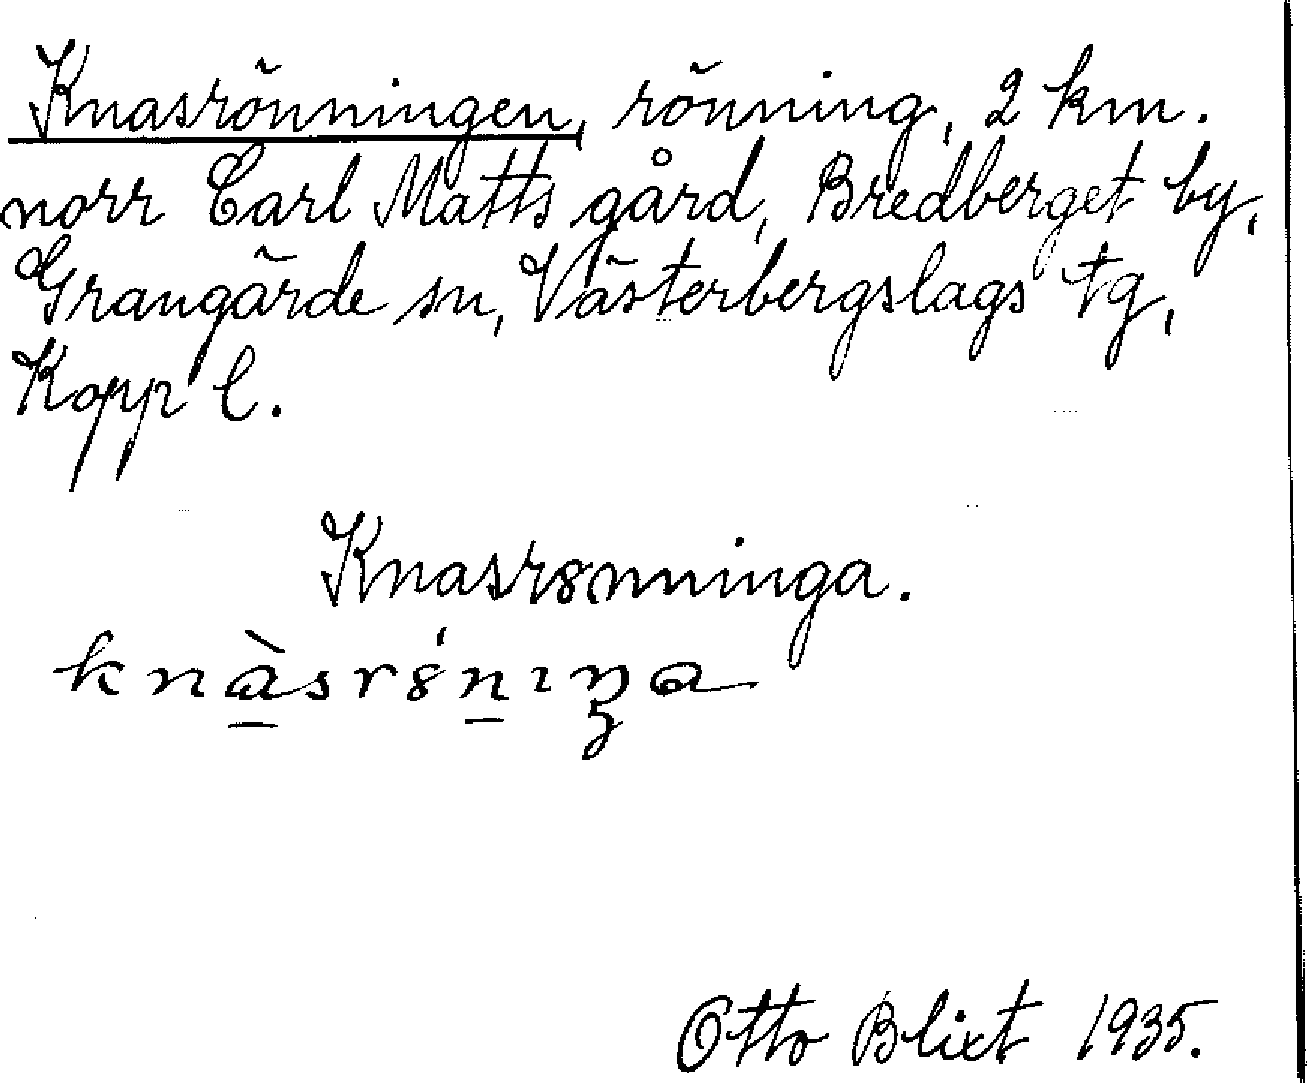 Knasrönningen, rönning, 2 km.
norr Carl Matts gård, Bredberget by,
Grangärde sn, Västerbergslags tg,
Kopp l.
Knasrȣnninga.
knàsrȣ́nıŋa
Otto Blixt 1935.